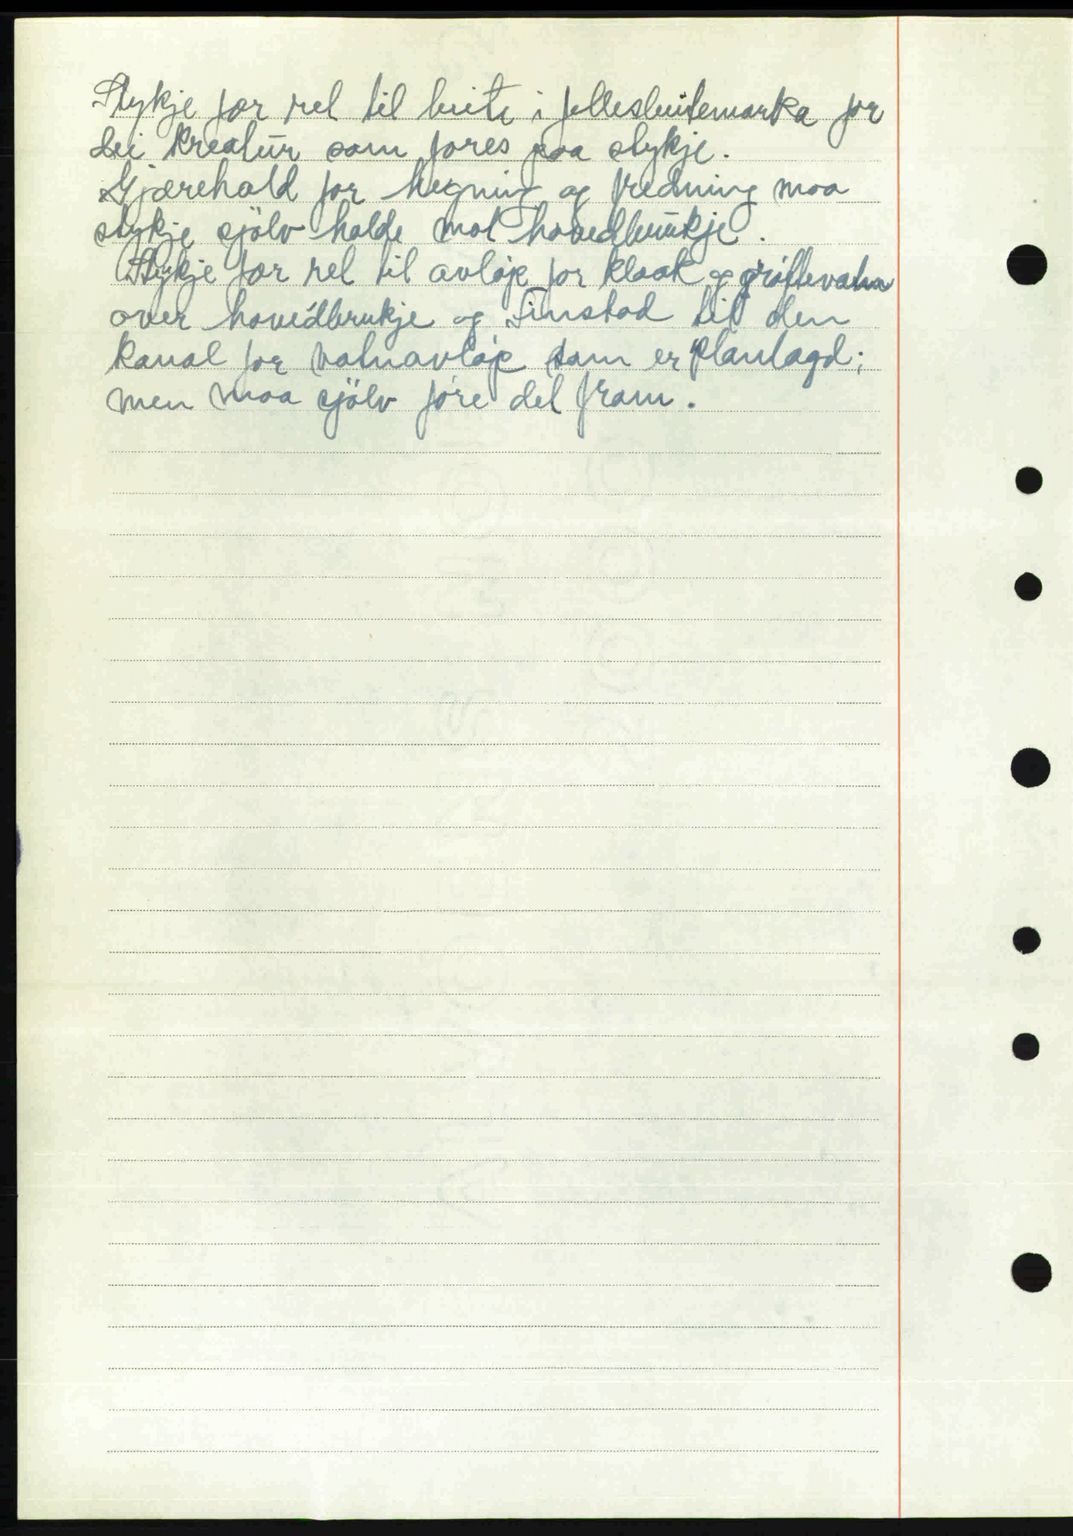 Stykje fær ret til beite i fellesbeitemarka for
dei kreatur som fores paa stykje.
Gjærehald for hegning og fredning maa
stykje sjölv halde mot hovedbrukje.
Stykje fær ret til avløp for kloak og grøftevatn
over hovedbrukje og Finstad til den
kanal for vatnavløp som er planlagd;
men maa sjölv føre det fram.